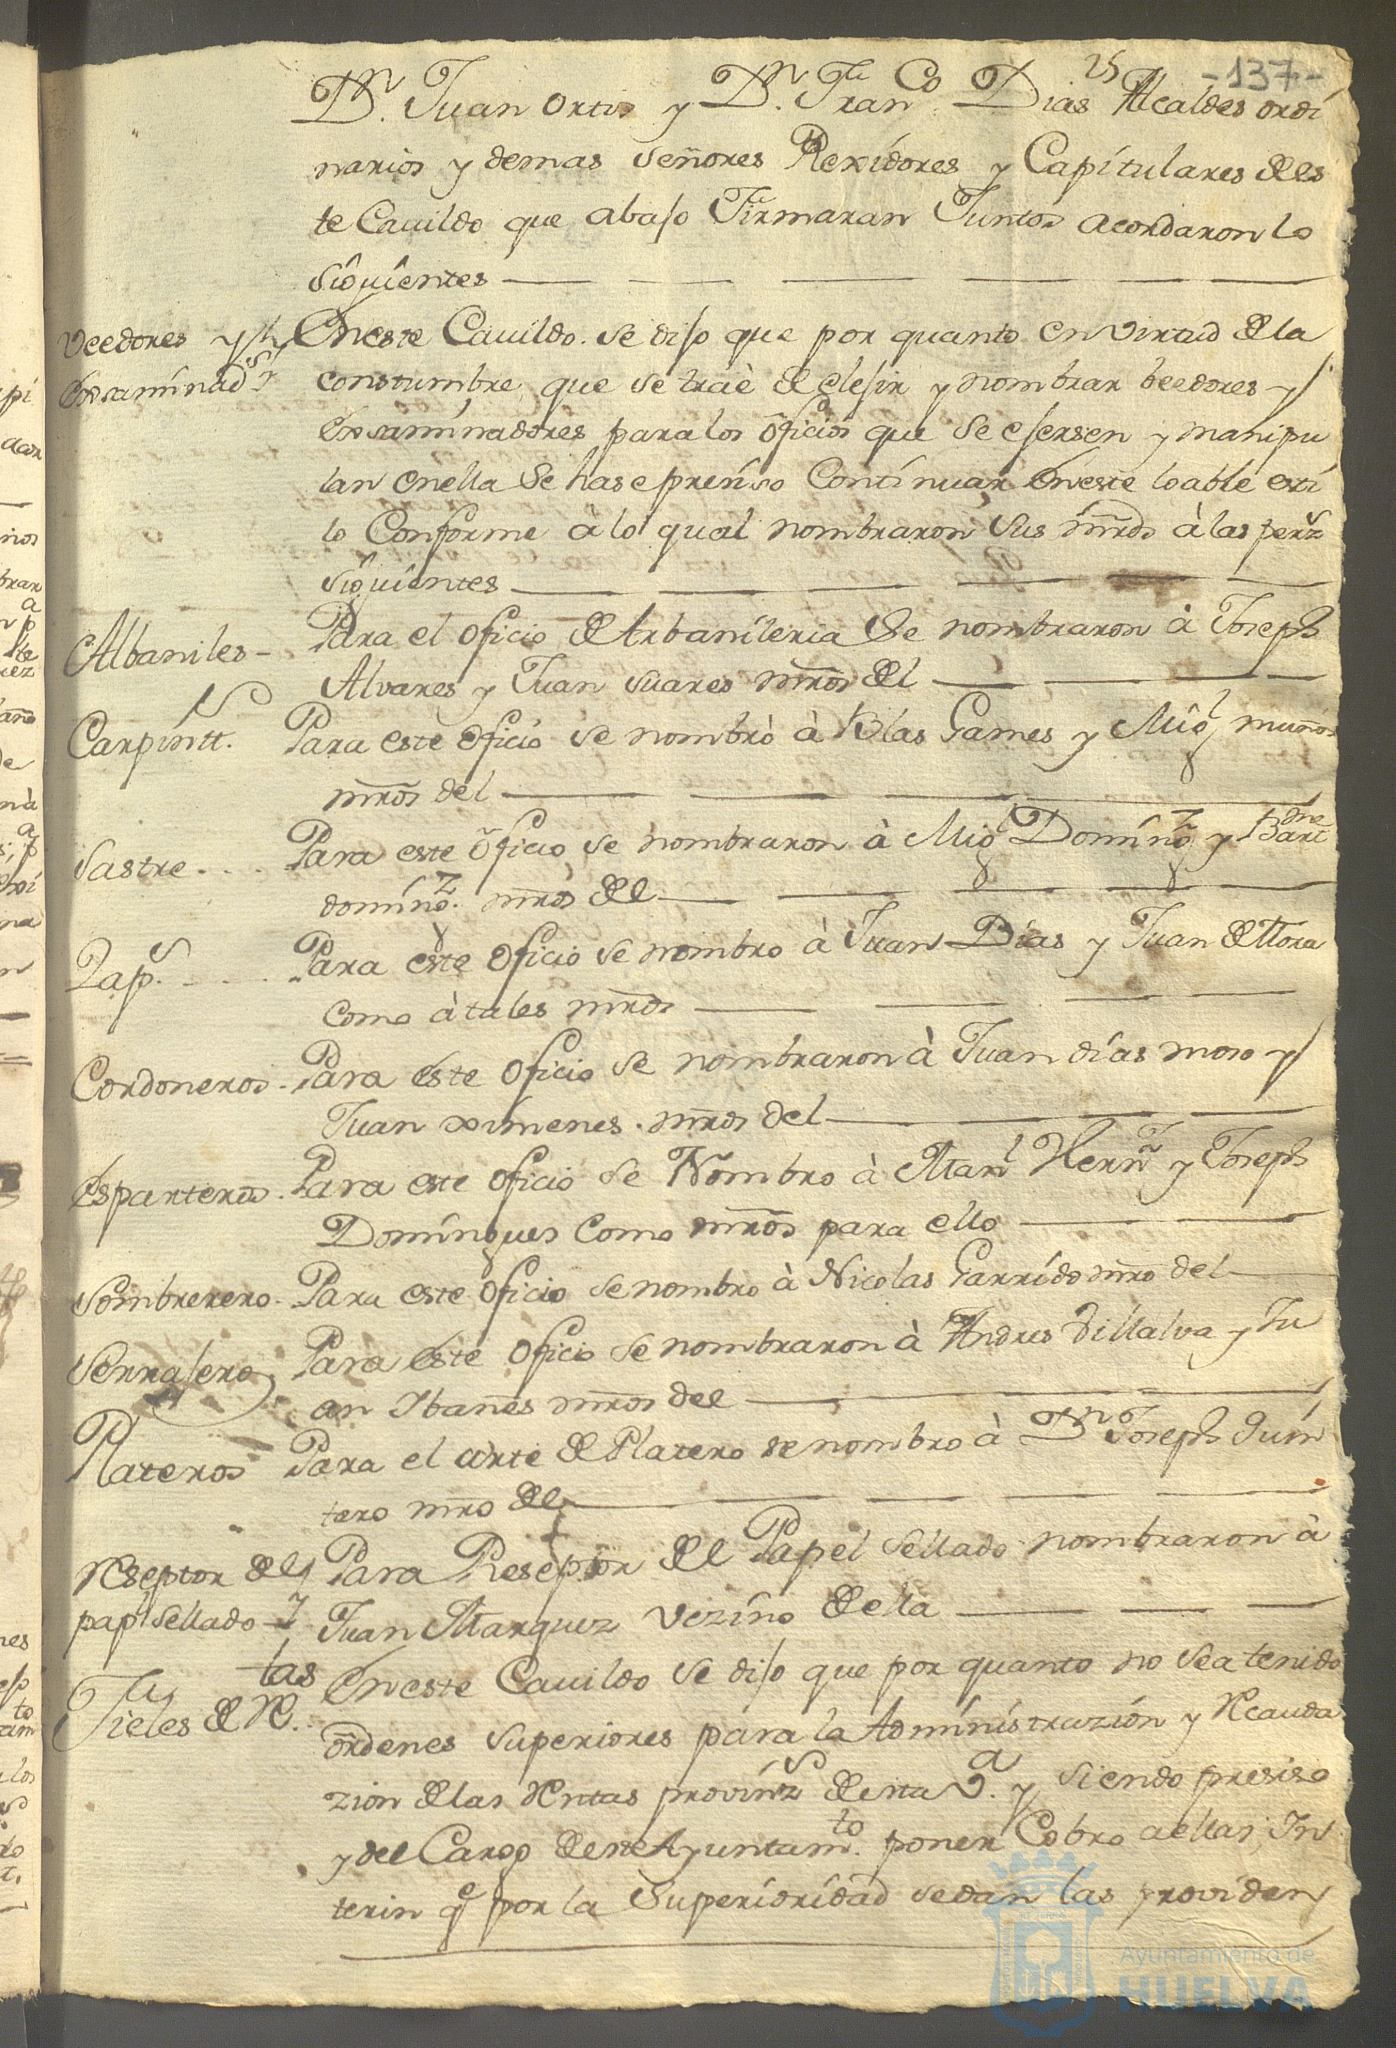 -137-
25
Dn. Juan ortis y Dn. Franco Dias Alcaldes ordi
narios y demas señores Rexidores y Capitulares de es
te Cauildo que abajo Firmaran Juntos acordaron lo
siguientes
Veedores y
Exsaminads
En este Cauildo se dijo que por quanto en virtud de la
constumbre que se trae de elejir y nombrar beedores y
Exsaminadores para los oficios que se ejersen y manipu
lan en ella se hase presiso Continuar en este loable esti
lo Conforme â lo qual nombraron sus mrds à las pers
siguientes
Albaniles-
Para el oficio de Arbanileria se nombraron à Joseph
Alvares y Juan suares mros del
Carpintt.
Para este oficio se nombrò à Blas Games y Migl muños
mros del
Sastre
Para este oficio se nombraron à Migl Domingz y Barme
domingz. mros del
Zaps.
Para este oficio se nombro à Juan Dias y Juan de Mora
como à tales mros
Cordoneros-
Para este oficio se nombraron à Juan dias moso y
Juan ximenes. mros del
Esparteros.
Para este oficio se Nombro à Manl Hernz y Joseph
Domingues Como mros para ello
Sombrerero-
Para este oficio se nombro à Nicolas Garrido mro del
Serrajero
Para este oficio se nombraron à Andres Villalva y Ju
an Ibañes mros del
Plateros
Para el arte de Platero se nombro à Dn Joseph Quin
tero mro del
Reseptor del
papl sellado
Para Reseptor del Papel sellado nombraron à
Juan Marquez vezino de ella
Fieles de Rtas.
En este Cauildo se dijo que por quanto no se a tenido
ordenes superiores para la Administrazión y Recauda
zion de las Rentas provinzs de esta va. y siendo presiso
y del Cargo de este Ayuntamto. poner Cobro a ellas In
terin qe por la Superioridad se dan las providen
Ayuntamiento de
HUELVA